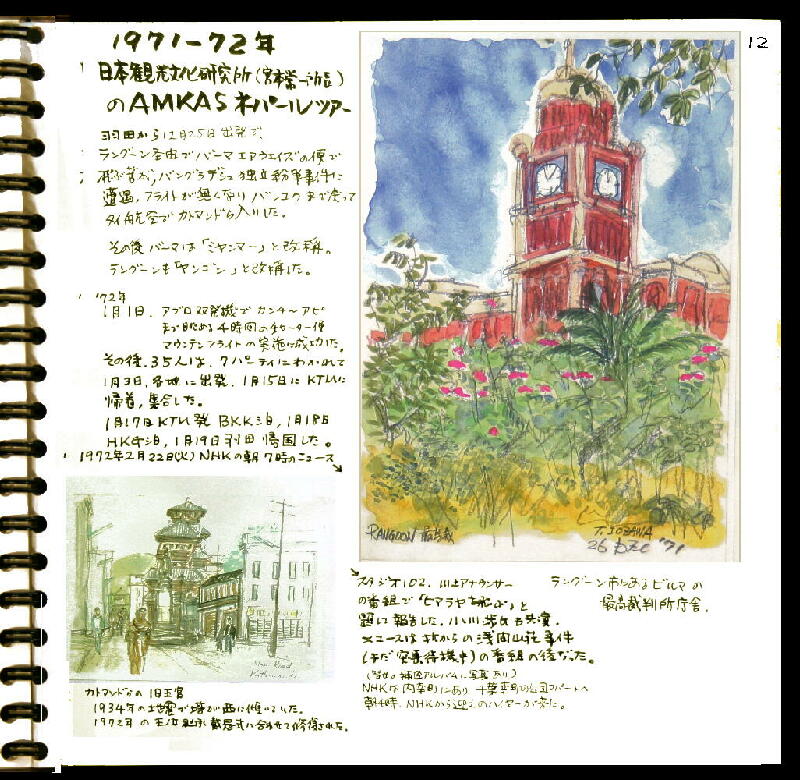 12
1971-72年
日本観光文化研究所(宮本常一所長)
のAMKASネパールツアー
羽田から12月25日出発で、
ラングーン経由でバーマエアウェイズの便で
バングラデシュ独立紛争事件に
遭遇、フライトが無くなりバンコクまで戻って
タイ航空でカトマンドウ入りした。
その後バーマは「ミャンマー」と改称。
ラングーンも「ヤンゴン」と改称した。
'72年
1月1日、アブロ双発機でカンチ〜アピ
まで眺める4時間のチャーター便
マウンテンフライトの実施に成功した。
その後、35人は、7パーティにわかれて
1月3日、各地に出発、1月15日にKTMに
帰着、集合した。
1月17日KTM発 BKK泊、1月18日
HKG泊、1月19日羽田帰国した。
1972年2月22日(火)NHKの朝7時のニュース
RANGOON
T. JOZAWA
26 Dec '71
Main Road
スタジオ102、川上アナウンサー
の番組で「ヒマラヤを飛ぶ」と
題し報告した。小川
ニュースは 浅間山荘事件
の番組の後だった。
NHKは内幸町にあり
朝4時、NHKから迎えのハイヤーが来た。
ラングーン市にあるビルマの
最高裁判所庁舎。
カトマンドウの旧王宮
1934年の大地震で塔が西に傾いていた。
1972年の 戴冠式に合わせて修復された。